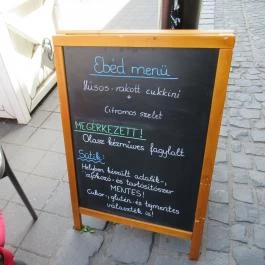 Ebéd menü
Húsos-rakott cukkini
+
Citromos szelet
MEGÉRKEZETT!
Olasz kézműves fagylalt
Sütik!
Helyben készült adalék-,
ízfokozó- és tartósítószer
MENTES!
Cukor-, glutén- és tejmentes
választék is!